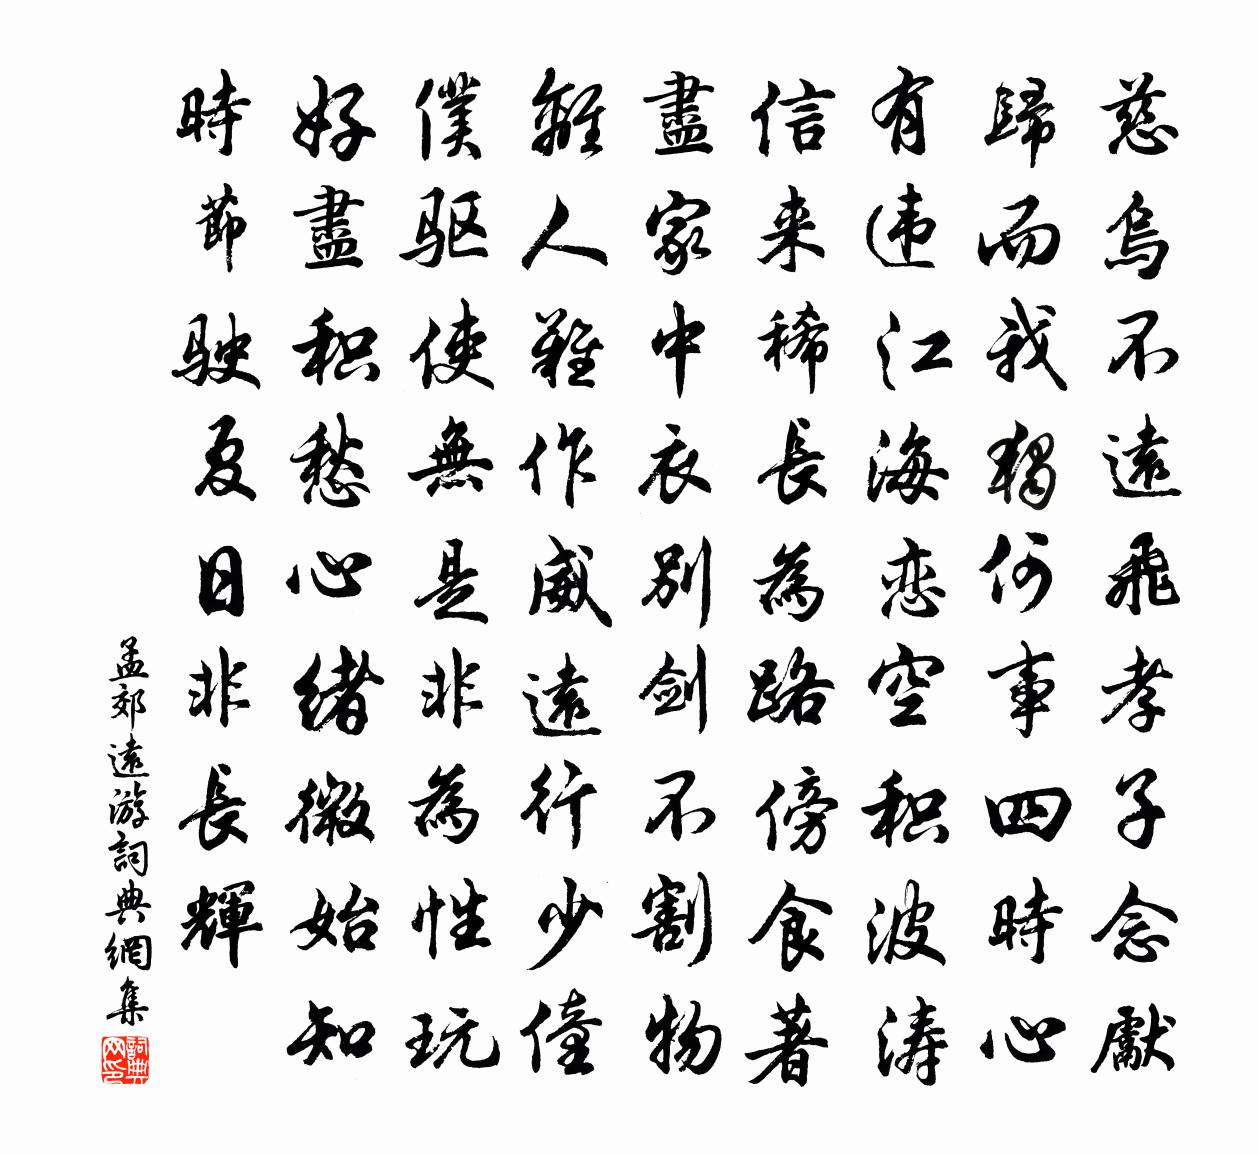 慈烏不遠飛孝子念獻
歸而我獨何事四時心
有违江海恋空积波涛
信来稀長為路傍食著
盡家中衣別剑不割物
離人難作威遠行少僮
僕驱使無是非為性玩
好盡积愁心緒微始知
時節駛夏日非長輝
孟郊遠游詞典網集
詞典网印